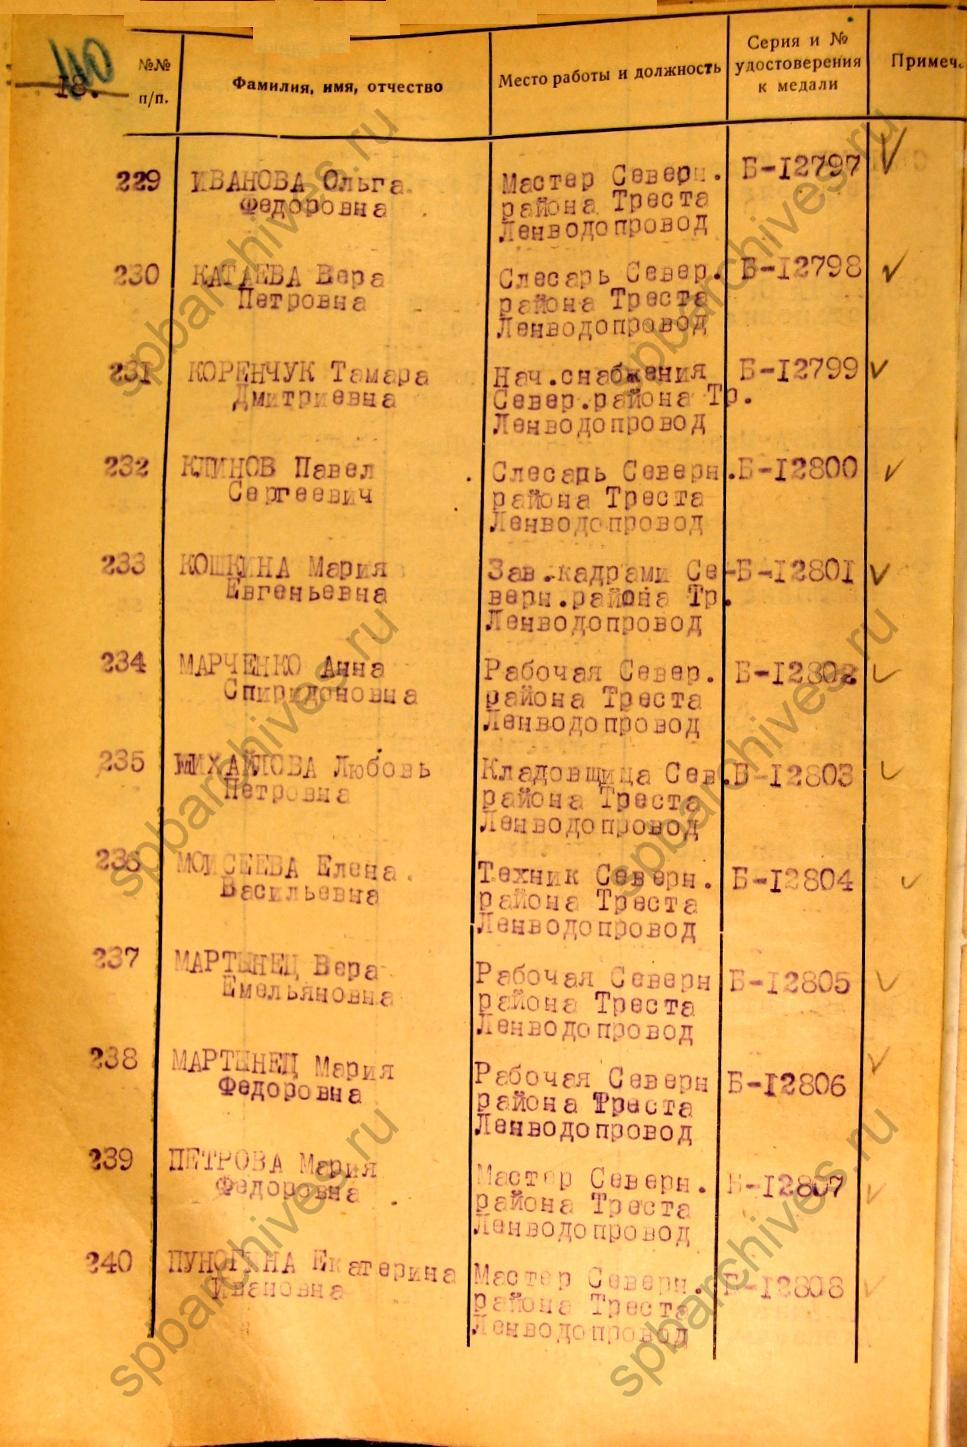 110
18.
№№ п/п.
Фамилия, имя, отчество
Место работы и должность
Серия и № удостоверения к медали
Примеч.
229 ИВАНОВА Ольга Мастер Северн. Б-12797
Федоровна района Треста
Ленводопровод
230 КАТАЕВА Вера Слесарь Север. Б-12798
Петровна района Треста
Ленводопровод
231 КОРЕНЧУК Тамара Нач.снабжения Б-12799
Дмитриевна Север.района Тр.
Ленводопровод
232 КЛИНОВ Павел Слесарь Северн. Б-12800
Сергеевич района Треста
Ленводопровод
233 КОШКИНА Мария Зав.кадрами Се- Б-12801
Евгеньевна верн.района Тр.
Ленводопровод
234 МАРЧЕНКО Анна Рабочая Север. Б-12802
Спиридоновна района Треста
Ленводопровод
235 МИХАЙЛОВА Любовь Кладовщица Сев. Б-12803
Петровна района Треста
Ленводопровод
236 МОИСЕЕВА Елена Техник Северн. Б-12804
Васильевна района Треста
Ленводопровод
237 МАРТЫНЕЦ Вера Рабочая Северн Б-12805
Емельяновна района Треста
Ленводопровод
238 МАРТЫНЕЦ Мария Рабочая Северн Б-12806
Федоровна района Треста
Ленводопровод
239 ПЕТРОВА Мария Мастер Северн. Б-12807
Федоровна района Треста
Ленводопровод
240 Екатерина Мастер Северн. Б-12808
Ивановна района Треста
Ленводопровод
spbarchives.ru
spbarchives.ru
spbarchives.ru
spbarchives.ru
spbarchives.ru
spbarchives.ru